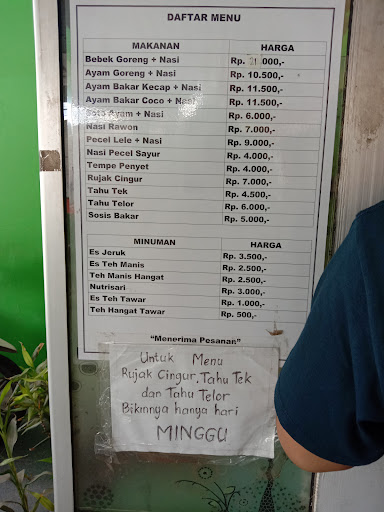 DAFTAR MENU
MAKANAN HARGA
Bebek Goreng + Nasi Rp. 21.000,-
Ayam Goreng + Nasi Rp. 10.500,-
Ayam Bakar Kecap + Nasi Rp. 11.500,-
Ayam Bakar Coco + Nasi Rp. 11.500,-
Soto Ayam + Nasi Rp. 6.000,-
Nasi Rawon Rp. 7.000,-
Pecel Lele + Nasi Rp. 9.000,-
Nasi Pecel Sayur Rp. 4.000,-
Tempe Penyet Rp. 4.000,-
Rujak Cingur Rp. 7.000,-
Tahu Tek Rp. 4.500,-
Tahu Telor Rp. 6.000,-
Sosis Bakar Rp. 5.000,-
MINUMAN HARGA
Es Jeruk Rp. 3.500,-
Es Teh Manis Rp. 2.500,-
Teh Manis Hangat Rp. 2.500,-
Nutrisari Rp. 3.000,-
Es Teh Tawar Rp. 1.000,-
Teh Hangat Tawar Rp. 500,-
"Menerima Pesanan"
Untuk Menu
Rujak Cingur, Tahu Tek
dan Tahu Telor
Bikinnya hanya hari
MINGGU